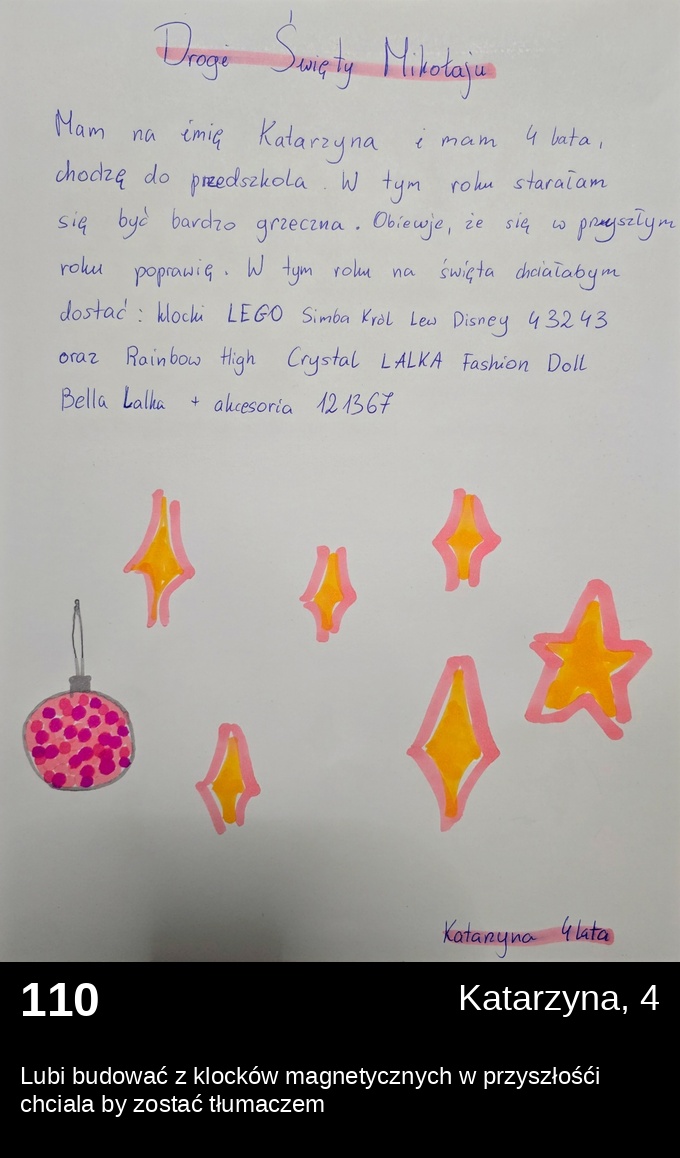 Drogi Święty Mikołaju
Mam na imię Katarzyna i mam 4 lata,
chodzę do przedszkola. W tym roku starałam
się być bardzo grzeczna. Obiecuję, że się w przyszłym
roku poprawię. W tym roku na święta chciałabym
dostać: klocki LEGO Simba Król Lew Disney 43243
oraz Rainbow High Crystal LALKA Fashion Doll
Bella Lalka + akcesoria 121367
Katarzyna 4 lata
110
Katarzyna, 4
Lubi budować z klocków magnetycznych w przyszłośći
chciala by zostać tłumaczem